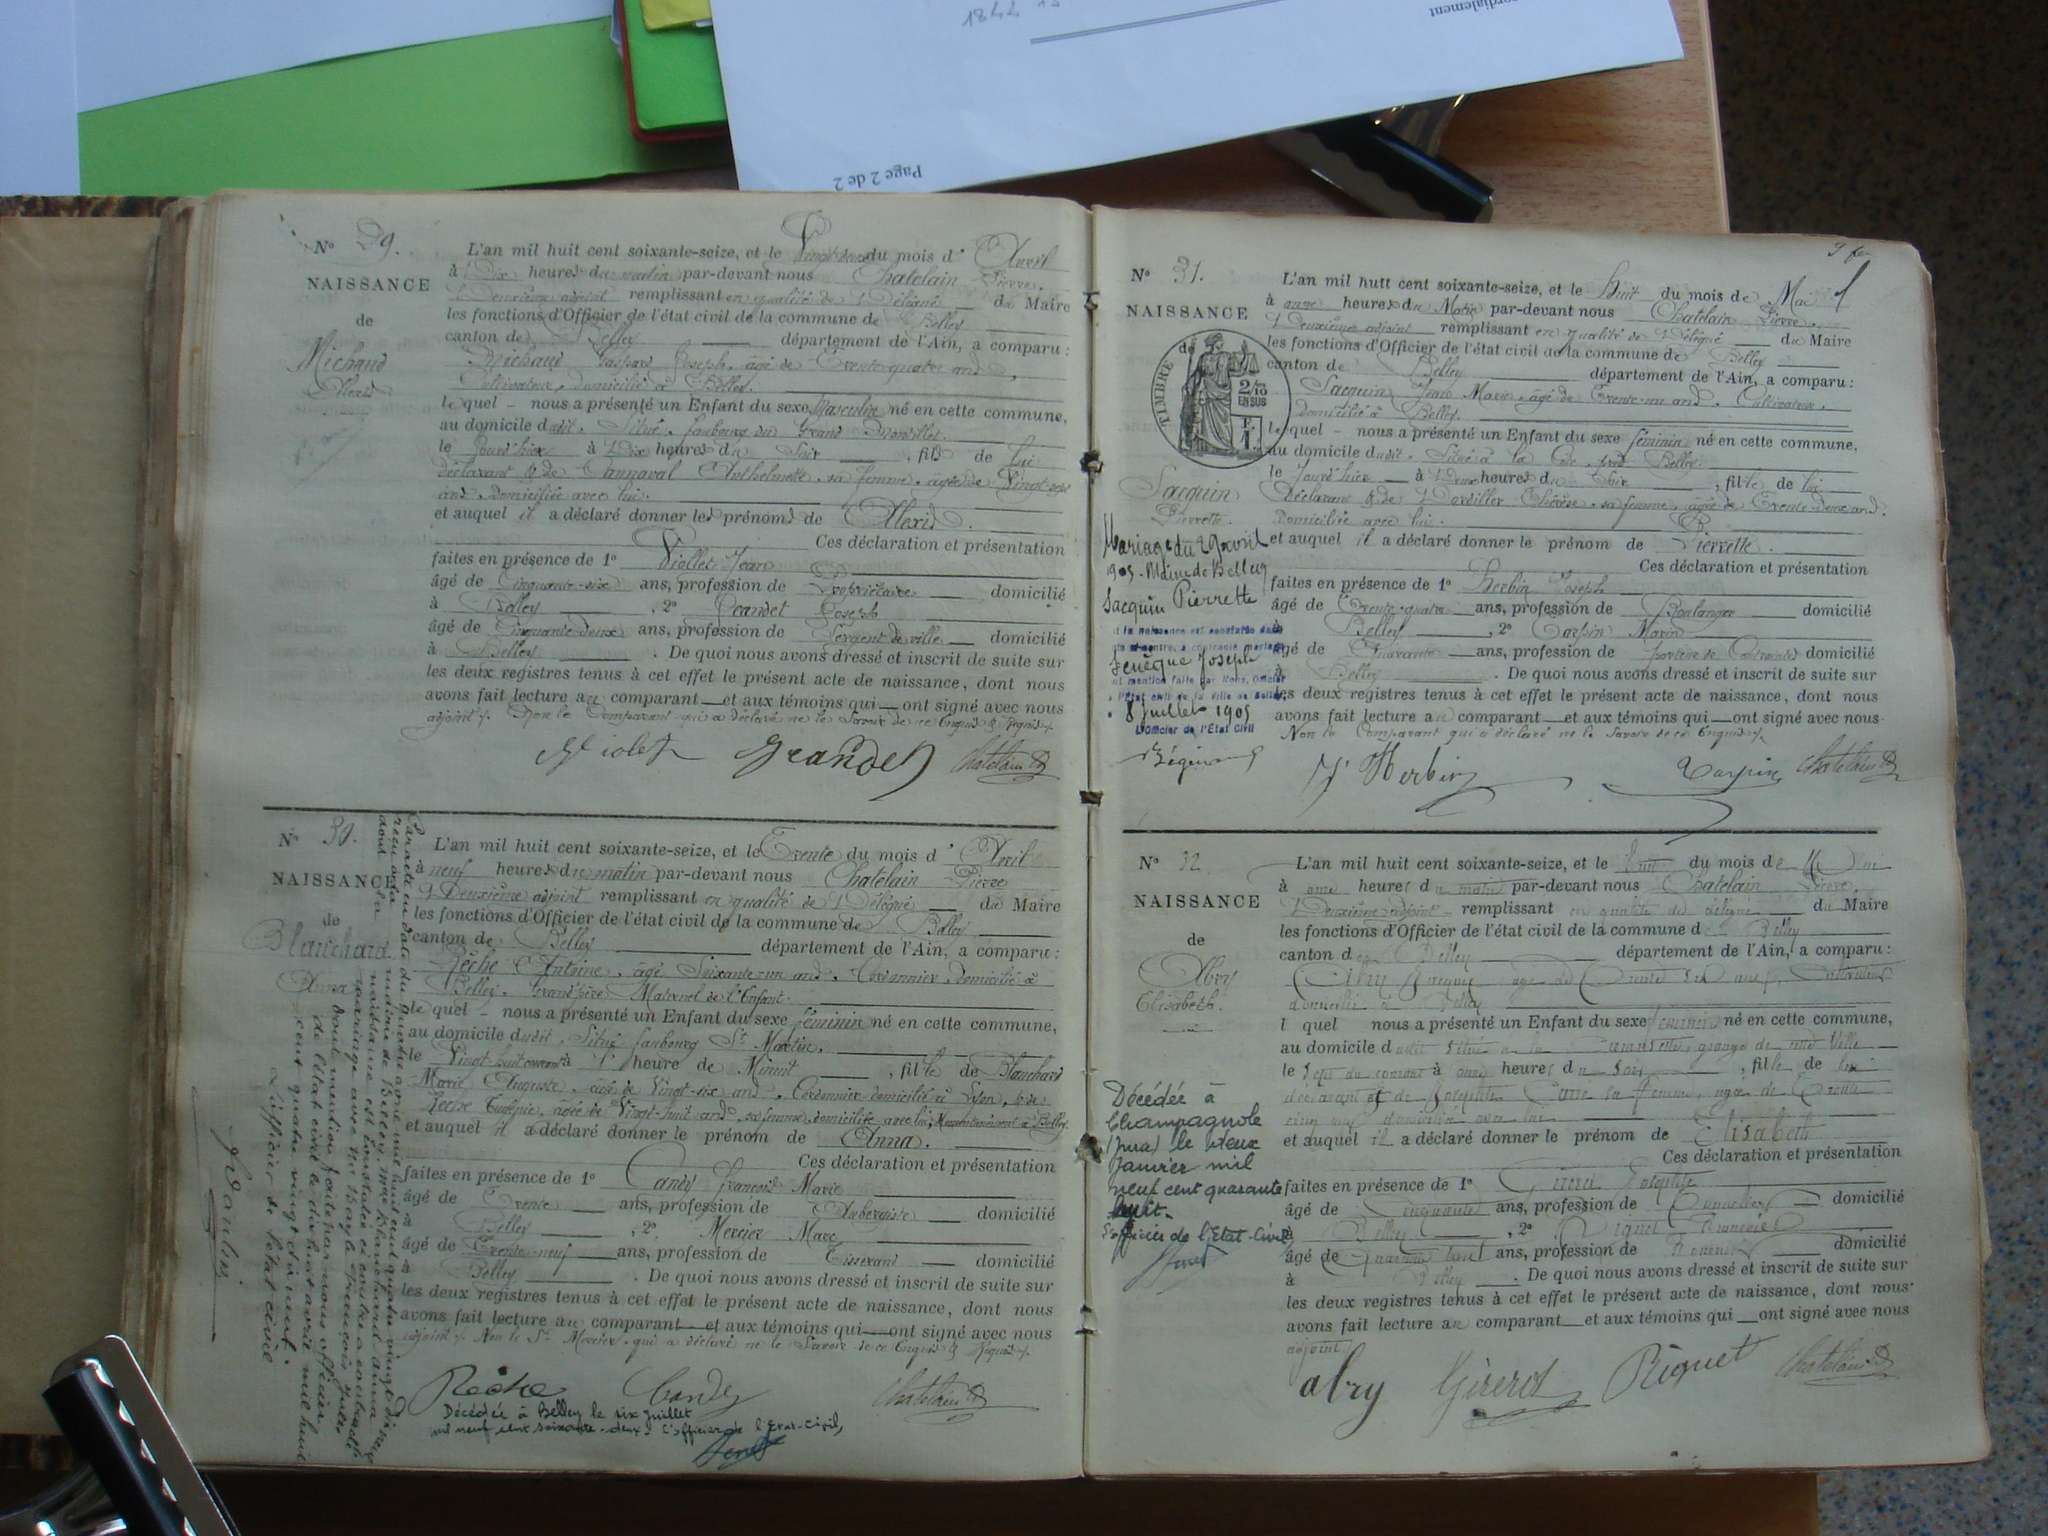 cordialement
1877
Page 2 de 2
N° 29.
NAISSANCE
de
Michaud
Alexis
L'an mil huit cent soixante-seize, et le du mois d' Avril
à Dix heures du matin par-devant nous Chatelain Pierre.
Deuxième adjoint remplissant en qualité de Délégué du Maire
les fonctions d'Officier de l'état civil de la commune de Belley
canton de Belley département de l'Ain, a comparu :
Michaud Gaspard Joseph, âgé de Trente quatre ans,
Cultivateur, domicilié à Belley.
le quel nous a présenté un Enfant du sexe Masculin né en cette commune,
au domicile dudit, Situé faubourg du Grand
le Jour d'hier à Dix heures du Soir, fils de lui
déclarant & de Anthelmette, sa femme, âgée de Vingt
ans, domiciliée avec lui.
et auquel il a déclaré donner les prénoms de Alexis.
Ces déclaration et présentation
faites en présence de 1° Viollet Jean
âgé de Cinquante-six ans, profession de Propriétaire domicilié
à Belley, 2° Grandet Joseph
âgé de Cinquante deux ans, profession de Sergent de ville domicilié
à Belley. De quoi nous avons dressé et inscrit de suite sur
les deux registres tenus à cet effet le présent acte de naissance, dont nous
avons fait lecture au comparant et aux témoins qui ont signé avec nous
adjoint, Non le Comparant qui a déclaré ne le Savoir de ce Enquis & Requis.
Violet Grandet Chatelain
N° 30.
NAISSANCE
de
Blanchard
Anna
L'an mil huit cent soixante-seize, et le Trente du mois d' Avril
à neuf heures du matin par-devant nous Chatelain Pierre
Deuxième adjoint remplissant en qualité de Délégué du Maire
les fonctions d'Officier de l'état civil de la commune de Belley
canton de Belley département de l'Ain, a comparu :
Réche Antoine, âgé Soixante-un ans, Cordonnier Domicilié à
Belley, Grand père Maternel de l'Enfant.
le quel nous a présenté un Enfant du sexe féminin né en cette commune,
au domicile dudit, Situé faubourg St Martin.
le Vingt huit courant à heure de Minuit, fille de Blanchard
Marie Auguste, âgé de Vingt-six ans, Cordonnier domicilié à Lyon, & de
Reche Eugénie, âgée de Vingt-huit ans sa femme, domiciliée avec lui, Momentanément à Belley
et auquel il a déclaré donner le prénom de Anna.
Ces déclaration et présentation
faites en présence de 1° Candy François Marie
âgé de Trente ans, profession de Aubergiste domicilié
à Belley, 2° Mercier Marc
âgé de Trente-neuf ans, profession de Tisserand domicilié
à Belley. De quoi nous avons dressé et inscrit de suite sur
les deux registres tenus à cet effet le présent acte de naissance, dont nous
avons fait lecture au comparant et aux témoins qui ont signé avec nous
adjoint, Non le Sr Mercier, qui a déclaré ne le Savoir de ce Enquis & Requis.
Reche Candy Chatelain
Décédée à Belley le six juillet
mil neuf cent soixante-deux. L'officier de l'Etat-Civil,
Par acte en date du quatre avril mil huit cent quatre vingt dix
reçu à la mairie de Belley, Mlle Blanchard Anna
dont la naissance est constatée ci contre a contracté
mariage avec
dont mention faite par nous officier
de l'état civil le dix huit avril mil huit
cent quatre vingt dix neuf.
L'officier de l'état civil
N° 31.
NAISSANCE
de
TIMBRE
2/10
EN SUS
Jacquin
Pierrette
L'an mil huit cent soixante-seize, et le Huit du mois de Mai
à onze heures du Matin par-devant nous Chatelain Pierre.
Deuxième adjoint remplissant en qualité de Délégué du Maire
les fonctions d'Officier de l'état civil de la commune de Belley
canton de Belley département de l'Ain, a comparu :
Jacquin Jean Marie, âgé de Trente-un ans, Cultivateur,
domicilié à Belley.
le quel nous a présenté un Enfant du sexe féminin né en cette commune,
au domicile dudit, Situé à la Belley.
le Jour d'hier à heures du Soir, fille de lui
Déclarant & de Thérèse, sa femme, âgée de Trente deux ans.
Domiciliée avec lui.
et auquel il a déclaré donner le prénom de Pierrette.
Ces déclaration et présentation
faites en présence de 1° Herbin Joseph
âgé de Trente-quatre ans, profession de Boulanger domicilié
à Belley, 2° Carpin Marin
âgé de Quarante ans, profession de domicilié
à Belley. De quoi nous avons dressé et inscrit de suite sur
les deux registres tenus à cet effet le présent acte de naissance, dont nous
avons fait lecture au comparant et aux témoins qui ont signé avec nous
Non le Comparant qui a déclaré ne le Savoir de ce Enquis.
J Herbin Carpin Chatelain
Mariage du 29 avril
1905 - Mairie de Belley
Jacquin Pierrette
la naissance est constatée dans
contre, a contracté mariage
Sénèque Joseph
mention faite par Nous, Officier
l'État civil de la Ville de Belley
8 Juillet 1905
L'Officier de l'État Civil
N° 32
NAISSANCE
de
Abry
Elisabeth.
L'an mil huit cent soixante-seize, et le huit du mois de Mai
à onze heures du matin par-devant nous Chatelain Pierre.
Deuxième adjoint remplissant en qualité de délégué du Maire
les fonctions d'Officier de l'état civil de la commune de Belley
canton de Belley département de l'Ain, a comparu :
Abry Jacques âgé de Trente six ans, Cultivateur
domicilié à Belley
l quel nous a présenté un Enfant du sexe féminin né en cette commune,
au domicile dudit situé à la grange de cette ville
le Sept du courant à onze heures du soir, fille de lui
déclarant et de sa femme, âgée de Trente
cinq ans domiciliée avec lui
et auquel il a déclaré donner le prénom de Elisabeth
Ces déclaration et présentation
faites en présence de 1°
âgé de Cinquante ans, profession de domicilié
à Belley, 2° Riquet
âgé de Quarante ans, profession de domicilié
à Belley. De quoi nous avons dressé et inscrit de suite sur
les deux registres tenus à cet effet le présent acte de naissance, dont nous
avons fait lecture au comparant et aux témoins qui ont signé avec nous
adjoint
abry Girerd Riquet Chatelain
Décédée à
Champagnole
(Jura) le vieux
Janvier mil
neuf cent quarante
huit.
L'officier de l'Etat-Civil